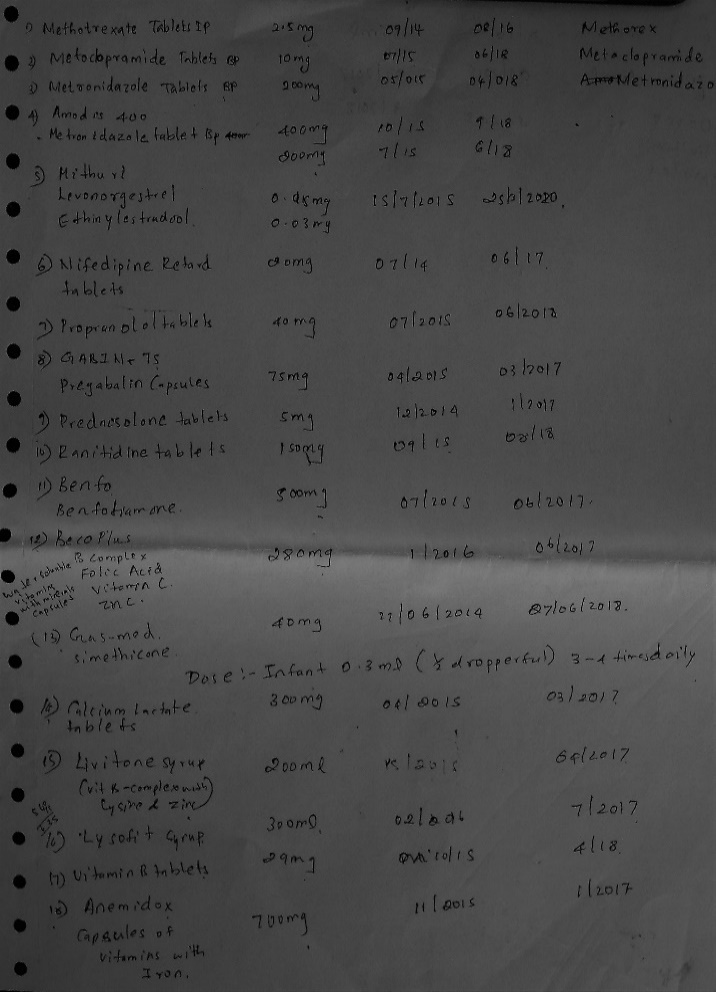 1) Methotrexate Tablets IP 2.5mg 09/14 08/16 Methorex
2) Metoclopramide Tablets BP 10mg 07/15 06/18 Metaclopramide
3) Metronidazole Tablets BP 200mg 05/015 04/018 Metronidazo
4) Amodis 400
. Metronidazole tablet Bp 400mg 10/15 9/18
200mg 7/15 6/18
5) Mithuri
Levonorgestrel 15/7/2015
Ethinylestradool 0.03mg
6) Nifedipine Retard 20mg 07/14 06/17
tablets
7) Propranolol tablets 40mg 07/2015 06/2018
8) GABIN - 75
Pregabalin Capsules 75mg 04/2015 03/2017
9) Prednesolone tablets 5mg 12/2014 1/2017
10) Ranitidine tablets 150mg 09/15 08/18
11) Benfo
Benfotiamone. 500mg 07/2015 06/2017.
12) Beco Plus 280mg 1/2016 06/2017
B complex
Folic Acid
Vitamin C.
Zinc.
Water soluble
vitamins
with minerals
capsules
(13) Gas-med. 40mg 27/06/2014 27/06/2018.
simethicone.
Dose :- Infant 0.3ml ( dropperful) 3-4 times daily
14) Calcium Lactate 300mg 04/2015 03/2017
tablets
15) Livitone syrup 200ml /2015 /2017
(vit B-complex with
Lysine & zinc)
16) Lysofit Syrup 300ml 7/2017
17) Vitamin B tablets 29mg 10/15 4/18
18) Anemidox 700mg 11/2015 1/2017
Capsules of
vitamins with
Iron.